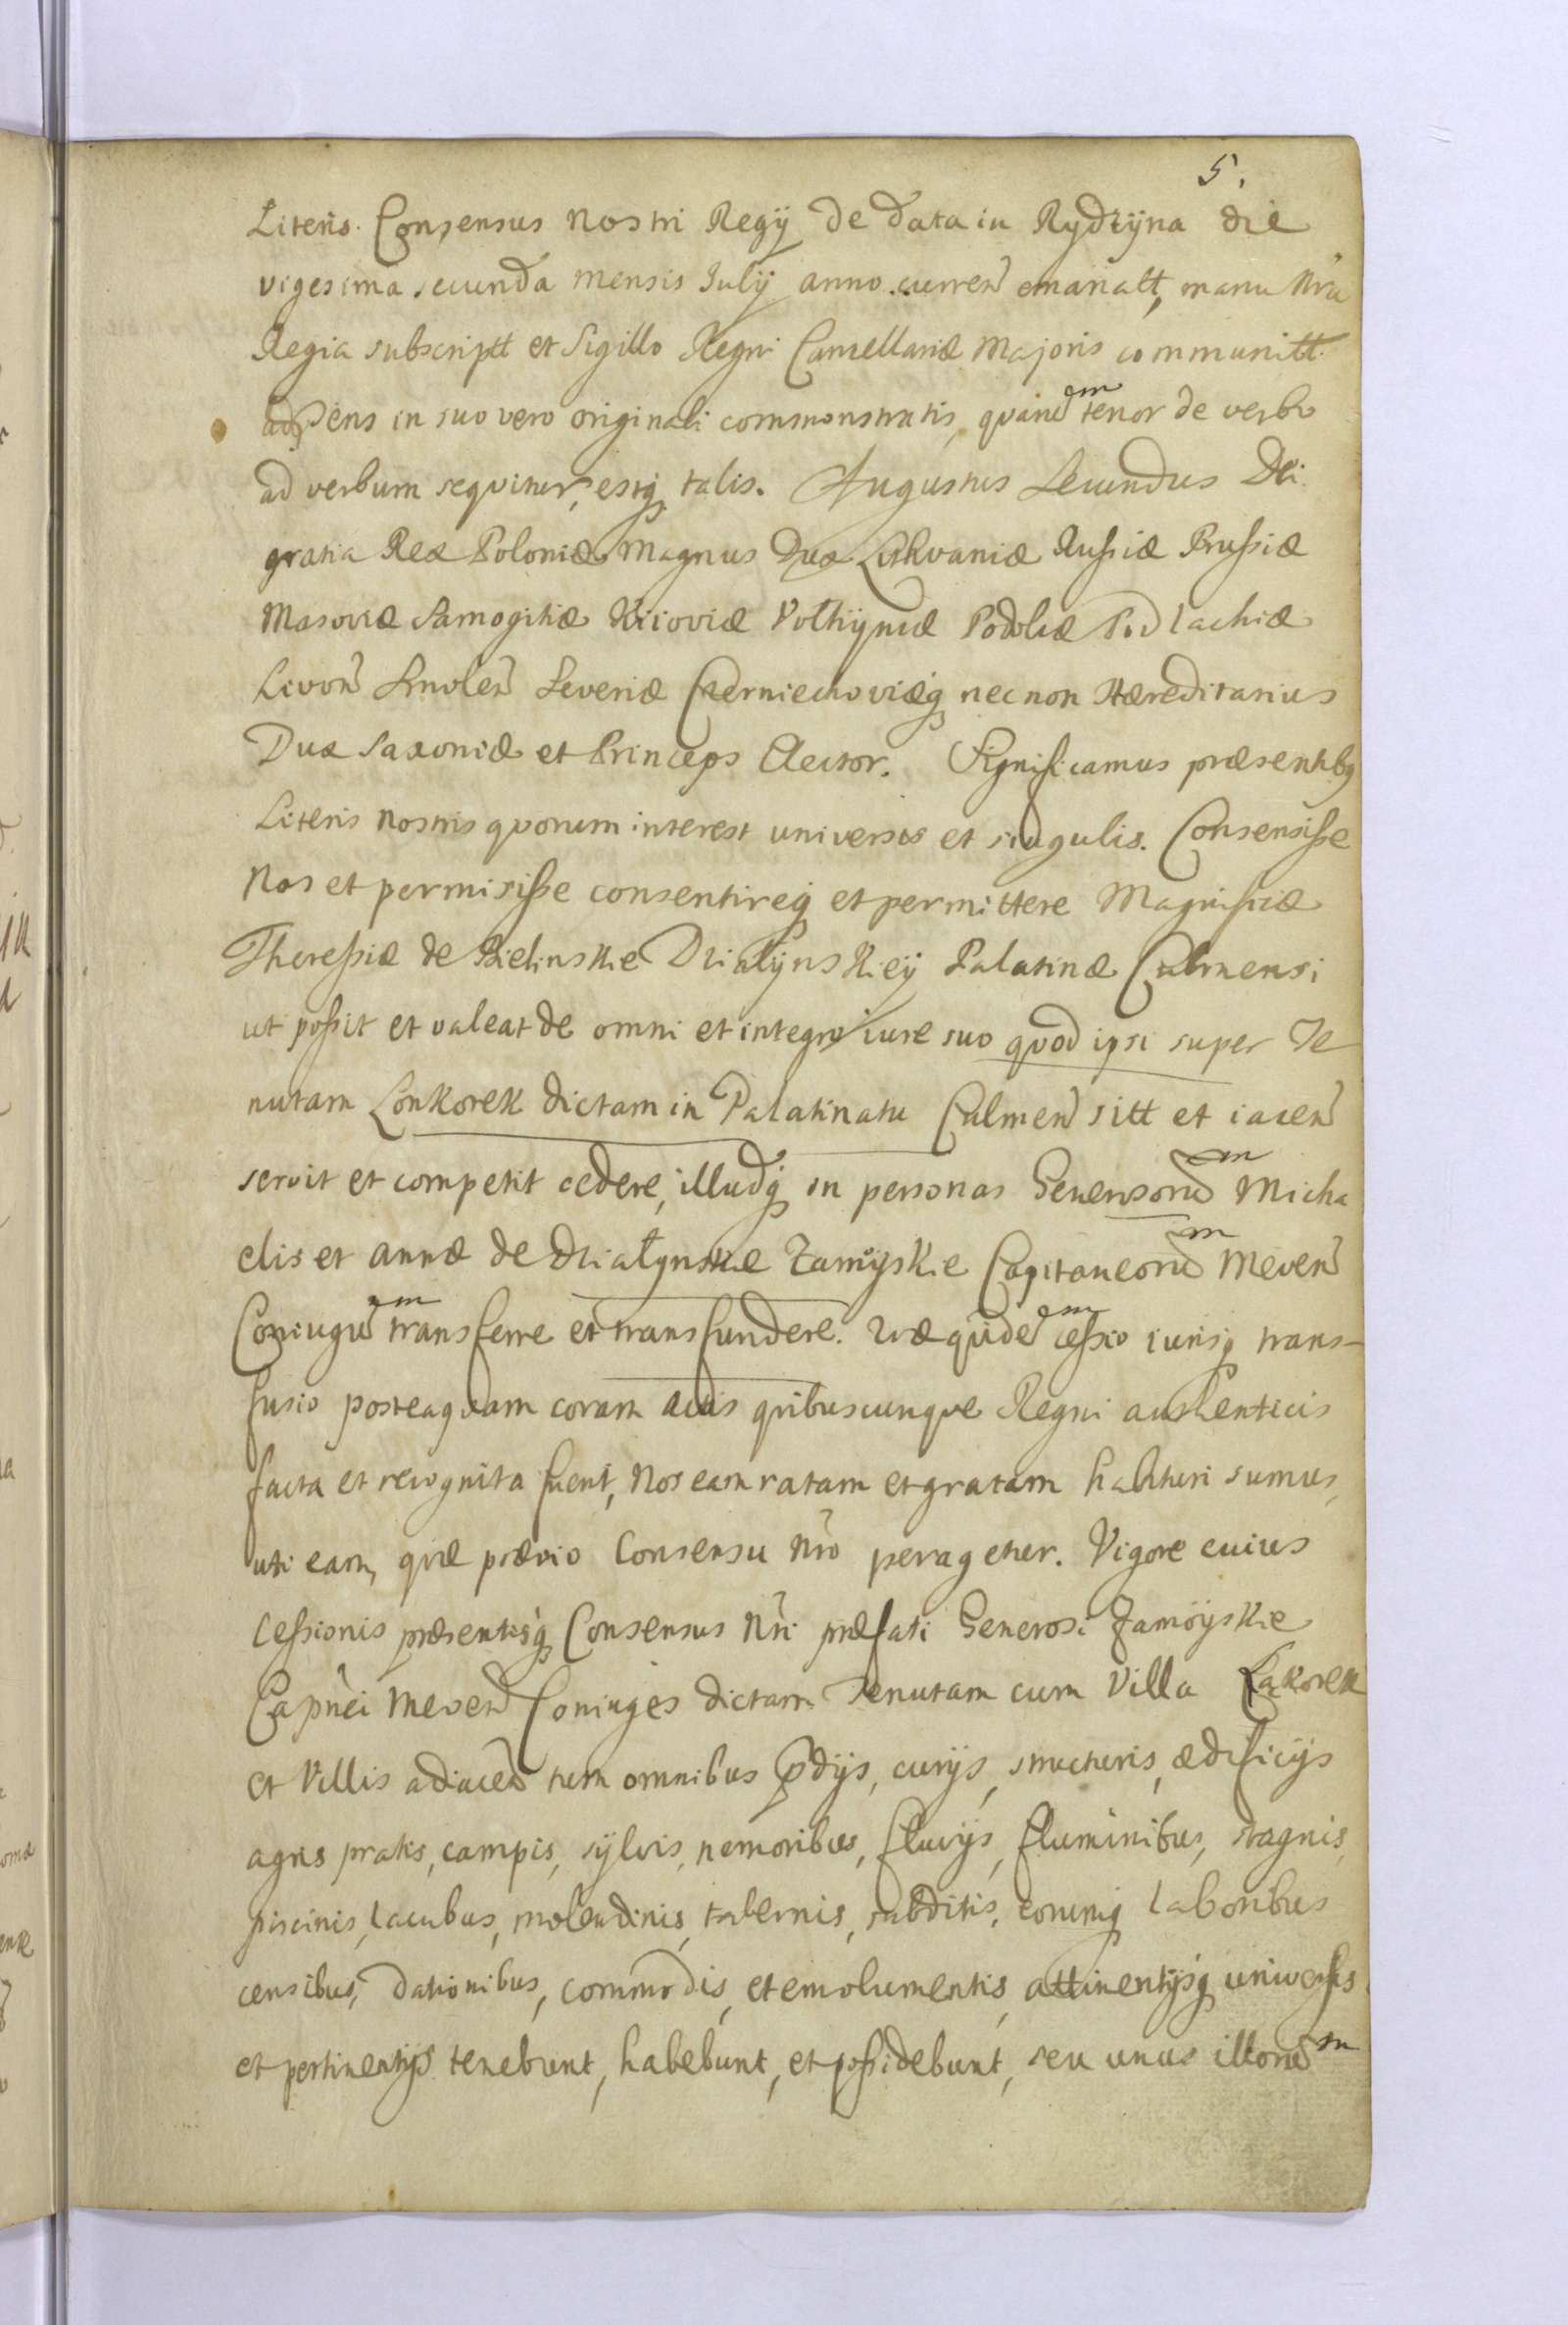 5.
Literis Consensus nostri Regij de data in Rydzyna die
vigesima secunda mensis Julij anno curren emanatt, manu Nra
Regia subscriptt et Sigillo Regni Cancellariæ Majoris communitt
ad pñs in suo vero originali commonstratis, quarum tenor de verbo
ad verbum sequitur, estq talis. Augustus Secundus Dei
gratia Rex Poloniæ Magnus Dux Lithvaniæ Rußiæ Prußiæ
Masoviæ Samogitiæ Kiioviæ Volhyniæ Podoliæ Podlachiæ
Livon Smolen Severiæ Czerniechoviæq necnon Hæreditarius
Dux Saxoniæ et Princeps Elector. Significamus præsentibq
Literis nostris quorum interest universis et singulis. Consensiße
Nos et permisiße consentireq et permittere Magnificæ
Thereßiæ de Bielinskie Dzialynskiey Palatinæ Culmensi
ut poßit et valeat de omni et integro iure suo quod ipsi super Te
nutam Lonkorek dictam in Palatinatu Culmen sitt et iacen
servit et competit cedere, illudq in personas Generosorum Micha
elis et Annæ de Dzialynskie Zamoyskie Capitaneorum Meven
Coniugum transferre et transfundere. Quæ quidem ceßio iurisq trans-
fusio posteaquam coram actis quibuscunque Regni authenticis
facta et recognita fuerit, Nos eam ratam et gratam habituri sumus,
uti eam, quæ prævio Consensu Nro peragetur. Vigore cuius
Ceßionis præsentisq Consensus Nri præfati Generosi Zamoyskie
Capnei Meven Coniuges dictam Tenutam cum Villa Łakorek
et Villis adiacen tum omnibus pdijs, curijs, structuris, ædificijs
agris pratis, campis, sylvis, nemoribus, fluvijs, fluminibus, stagnis,
piscinis, lacubus, molendinis, tabernis, subditis, eorumq laboribus
censibus, dationibus, commodis, et emolumentis, attinentijsq universis
et pertinentijs tenebunt, habebunt, et poßidebunt, seu unus illorum